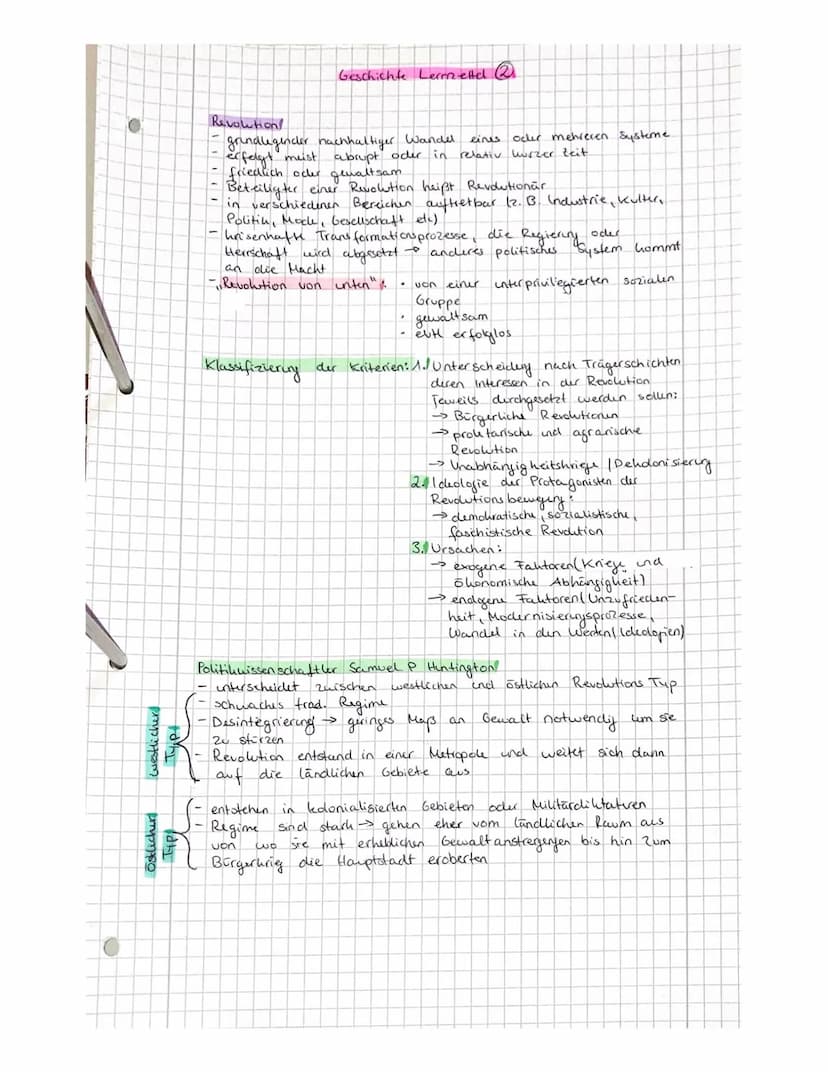 Geschichte Lernzettel 2
Revolution
- grundlegender nachhaltiger Wandel eines oder mehreren Systeme
- erfolgt meist abrupt oder in relativ kurzer Zeit
- friedlich oder gewaltsam
- Beteiligter einer Revolution heißt Revolutionär
- in verschiedenen Bereichen auftretbar (z.B. Industrie, Kultur,
Politik, Mode, Gesellschaft etc)
- krisenhafte Transformationsprozesse, die Regierung oder
Herrschaft wird abgesetzt → anderes politisches System kommt
an die Macht
- „Revolution von unten": • von einer unterprivilegierten sozialen
Gruppe
• gewaltsam
• evtl erfolglos
Klassifizierung der Kriterien: 1. Unterscheidung nach Trägerschichten
deren Interessen in der Revolution
jeweils durchgesetzt werden sollen:
→ Bürgerliche Revolutionen
→ proletarische und agrarische
Revolution
→ Unabhängigkeitskriege / Dekolonisierung
2. Ideologie der Protagonisten der
Revolutionsbewegung:
→ demokratische, sozialistische,
faschistische Revolution
3. Ursachen:
→ exogene Faktoren (Kriege und
ökonomische Abhängigkeit)
→ endogene Faktoren (Unzufrieden-
heit, Modernisierungsprozesse,
Wandel in den Werten/Ideologien)
Politikwissenschaftler Samuel P Huntington
- unterscheidet zwischen westlichen und östlichen Revolutions Typ
westlicher Typ
- schwaches trad. Regime
- Desintegrierung → geringes Maß an Gewalt notwendig um sie
zu stürzen
- Revolution entstand in einer Metropole und weitet sich dann
auf die ländlichen Gebiete aus
östlicher Typ
- entstehen in kolonialisierten Gebieten oder Militärdiktaturen
- Regime sind stark → gehen eher vom ländlichen Raum aus
von wo sie mit erheblichen Gewaltanstregungen bis hin zum
Bürgerkrig die Hauptstadt eroberten